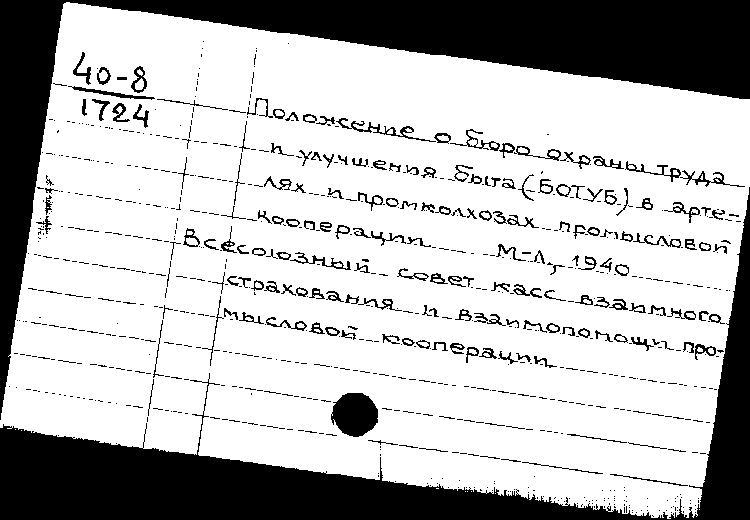 40-8
1724
Положение о бюро охраны труда
и улучшения быта (БОТУБ) в арте-
лях и промколхозах промысловой
кооперации М-Л., 1940
Всесоюзный совет касс взаимного
страхования и взаимопомощи про-
мысловой кооперации